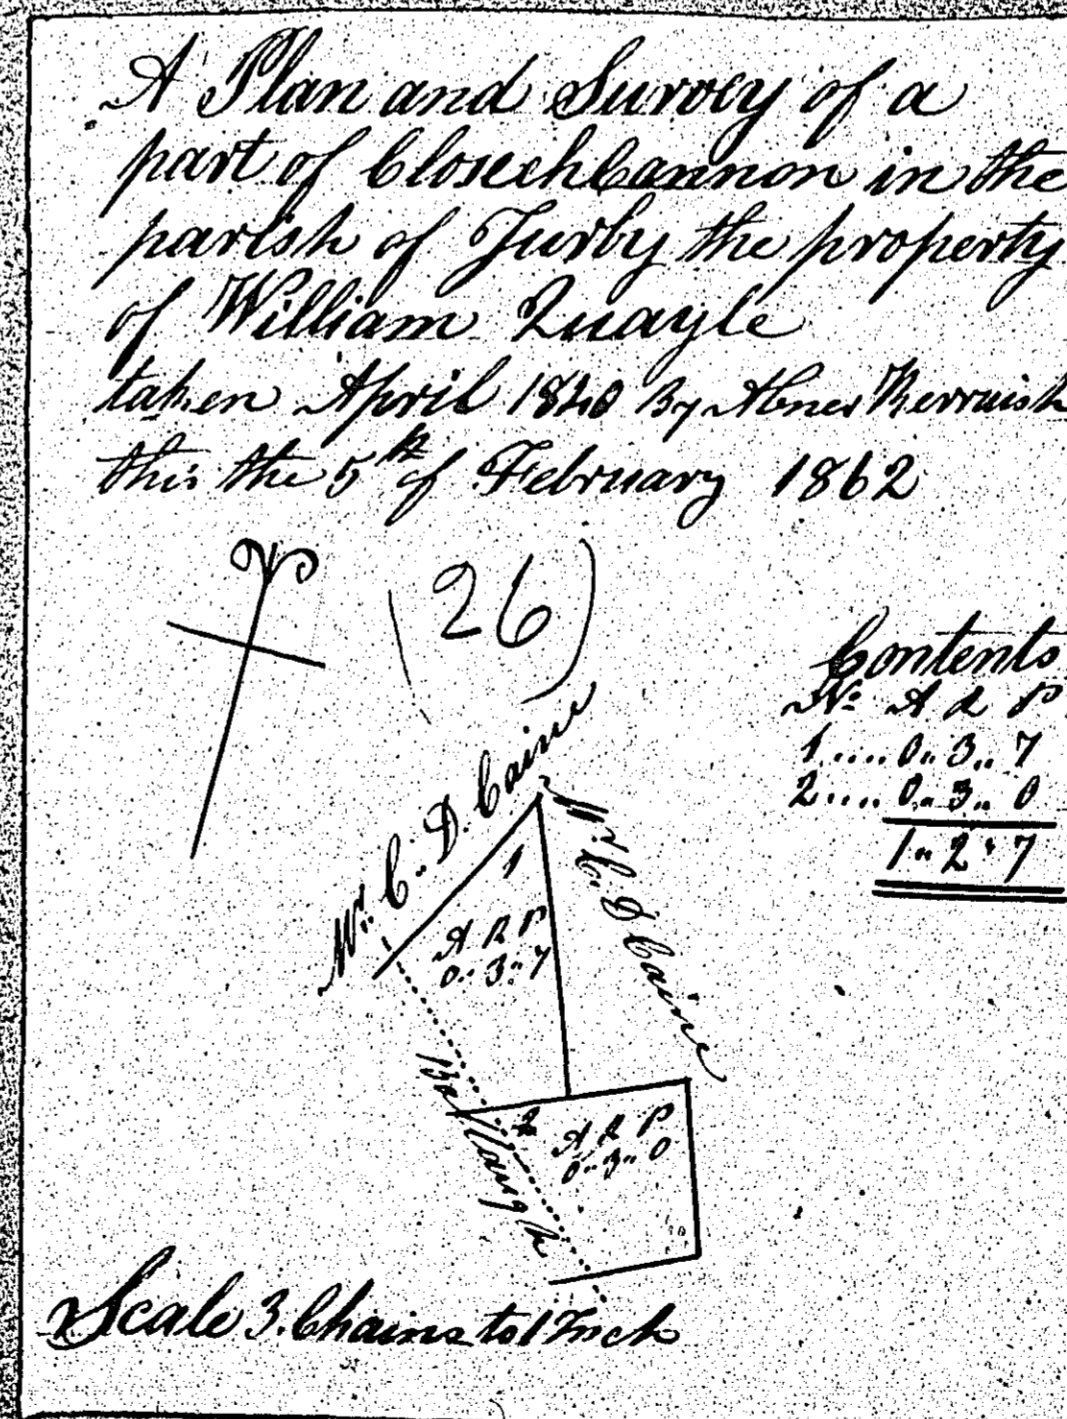 A Plan and Survey of a
part of ClosechCannon in the
parish of Jurby the property
of William Quayle
taken April 1840 By Abner Kerruish
this the 5th of February 1862
(26)
Contents
No. A R P
1....0..3..7
2....0..3..0
1..2..7
Mr. C. D. Caine
Mr. C. D Caine
1
A R P
0..3..7
Ballaugh
2
A R P
0..3..0
Scale 3. Chains to 1 Inch